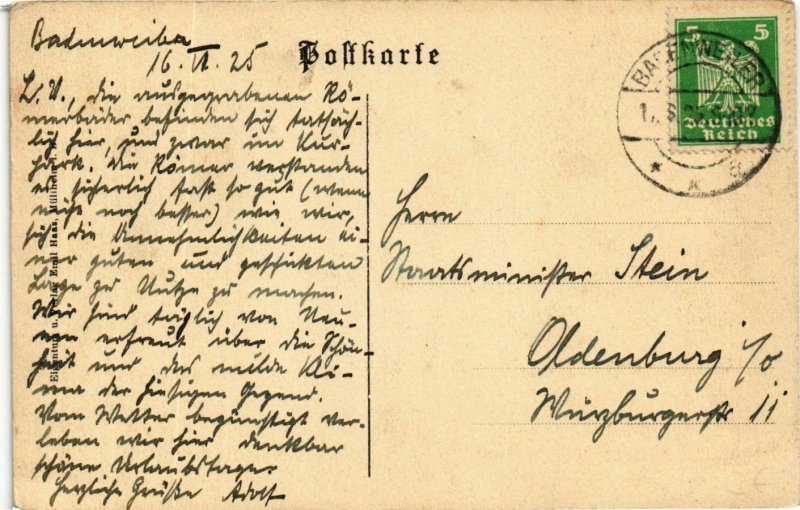 Badenweiler
16. VI. 25
L. V., die ausgegrabenen Rö-
merbäder befinden sich tatsäch-
lich hier, und zwar im Kur-
park. Die Römer verstanden
es sicherlich fast so gut (wenn
nicht noch besser) wie wir,
sich die Annehmlichkeiten ei-
ner guten und geschützten
Lage zu Nutze zu machen.
Wir sind täglich von Neu-
em erfreut über die Schön-
heit und das milde Kli-
ma der hiesigen Gegend.
Vom Wetter begünstigt ver-
leben wir hier denkbar
schöne Urlaubstage.
Herzliche Grüße Adolf
Eigentum u. Verlag Emil Haas, Müllheim
Postkarte
5 5
Deutsches
Reich
BADENWEILER
Herrn
Staatsminister Stein
Oldenburg i/O
Würzburgerstr 11